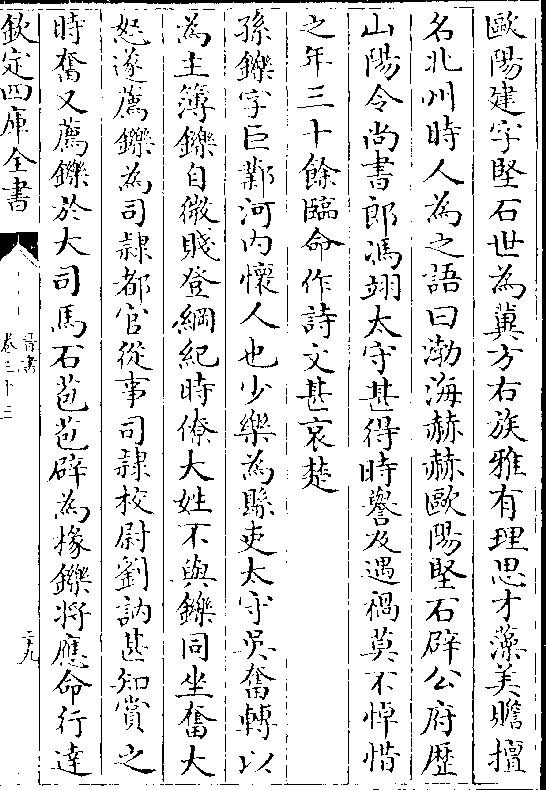 歐陽建字堅石世為冀方右族雅有理思才藻美贍擅
名北州時人為之語曰渤海赫赫歐陽堅石辟公府歴
山陽令尚書郎馮翊太守甚得時譽及遇禍莫不悼惜
之年三十餘臨命作詩文甚哀楚
孫鑠字巨鄴河内懐人也少樂為縣吏太守吳奮轉以
為主簿鑠自微賤登綱紀時僚大姓不與鑠同坐奮大
怒遂薦鑠為司隷都官從事司隷校尉劉訥甚知賞之
時奮又薦鑠於大司馬石苞苞辟為掾鑠將應命行達
欽定四庫全書
晉書
卷三十三
二九